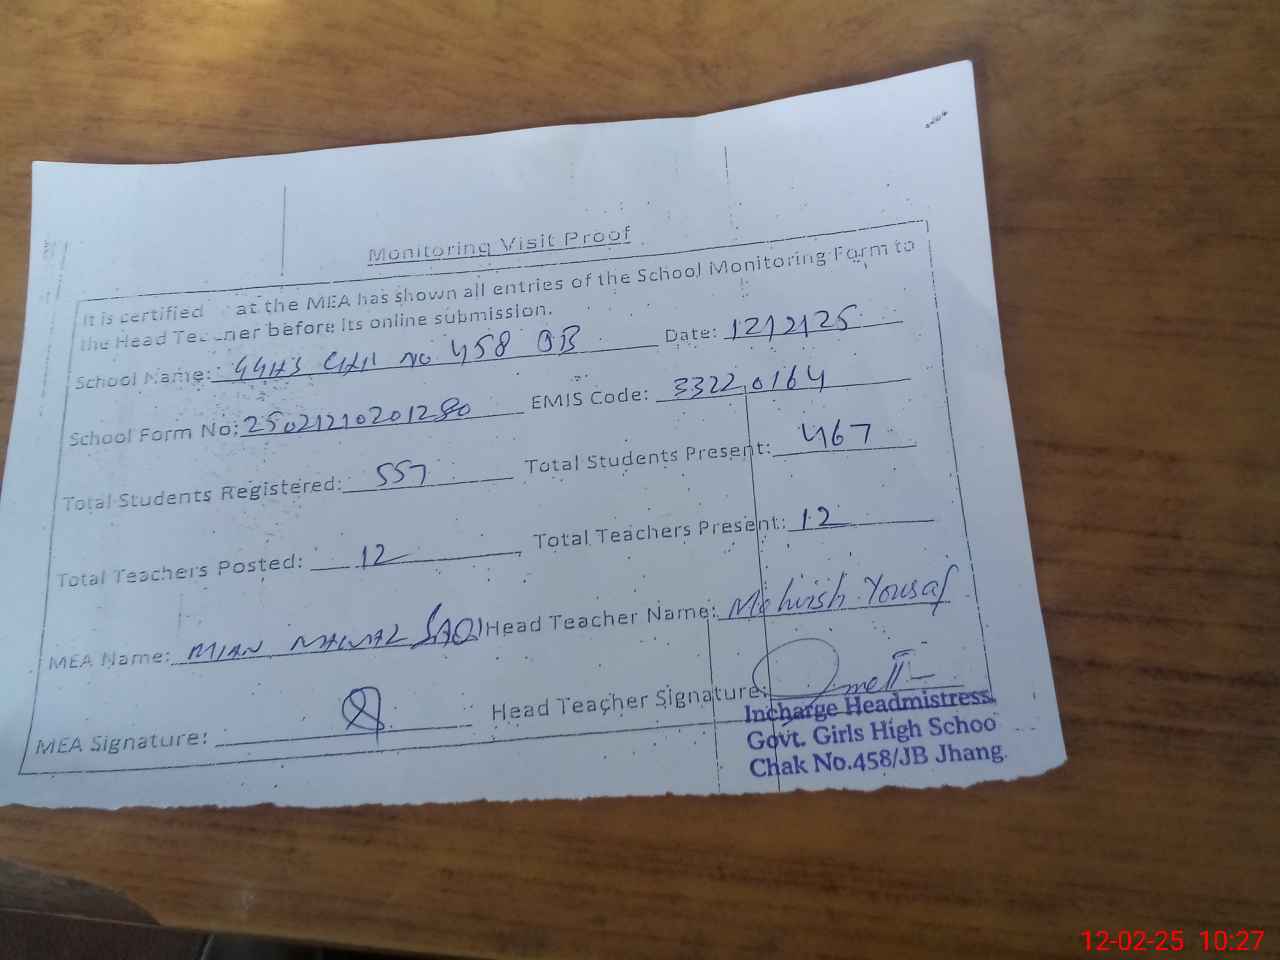 Monitoring Visit Proof
It is certified at the MEA has shown all entries of the School Monitoring Form to
the Head Tec ner before its online submission.
School Name: GGHS CHK No 458 JB Date: 12/2/25
School Form No: 25021210201280 EMIS Code: 33220164
Total Students Registered: 557 Total Students Present: 467
Total Teachers Posted: 12 Total Teachers Present: 12
MEA Name: MIAN NAWAZ Head Teacher Name: Mehwish Yousaf
MEA Signature: Head Teacher Signature:
Incharge Headmistress
Govt. Girls High Schoo
Chak No.458/JB Jhang.
12-02-25 10:27